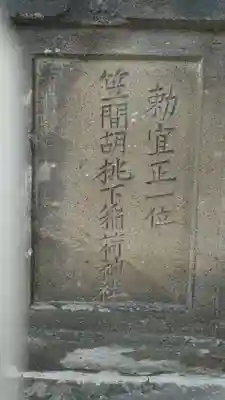 勅宣正一位
笠間胡桃下稲荷神社